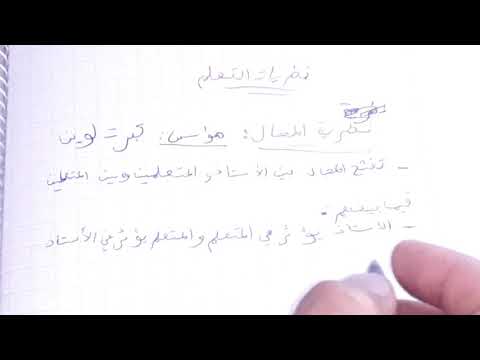 نظريات التعلم
نظرية المجال: هو أسس: كيرت لوين
- تفتح المجال بين الأستاذ و المتعلمين وبين المتعلمين
فيما بينهم.
- الأستاذ يؤثر في المتعلم و المتعلم يؤثر في الأستاذ